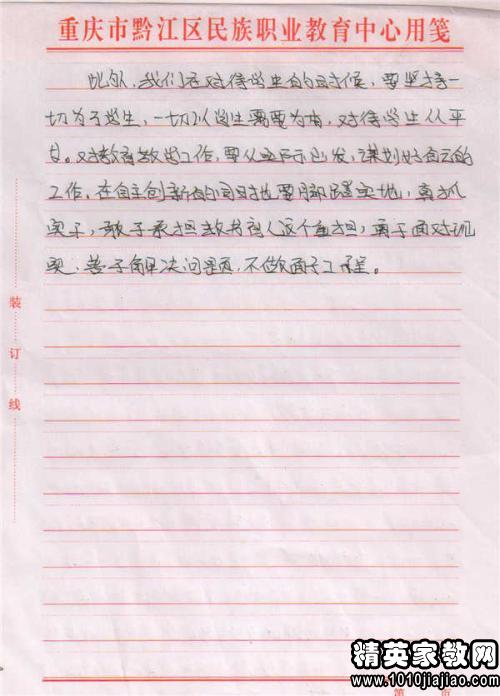 重庆市黔江区民族职业教育中心用笺
此外,我们在对待学生的时候,要坚持一
切为了学生,一切以学生需要为有,对待学生从平
等。对教育教学工作,要从实际出发,谋划好自己的
工作。在自主创新的同时也要脚踏实地,真抓
实干,敢于承担教书育人这个重担,勇于面对现
实,善于解决问题,不做面子工程。
装
订
线
第 页
精英家教网
www.1010jiajiao.com